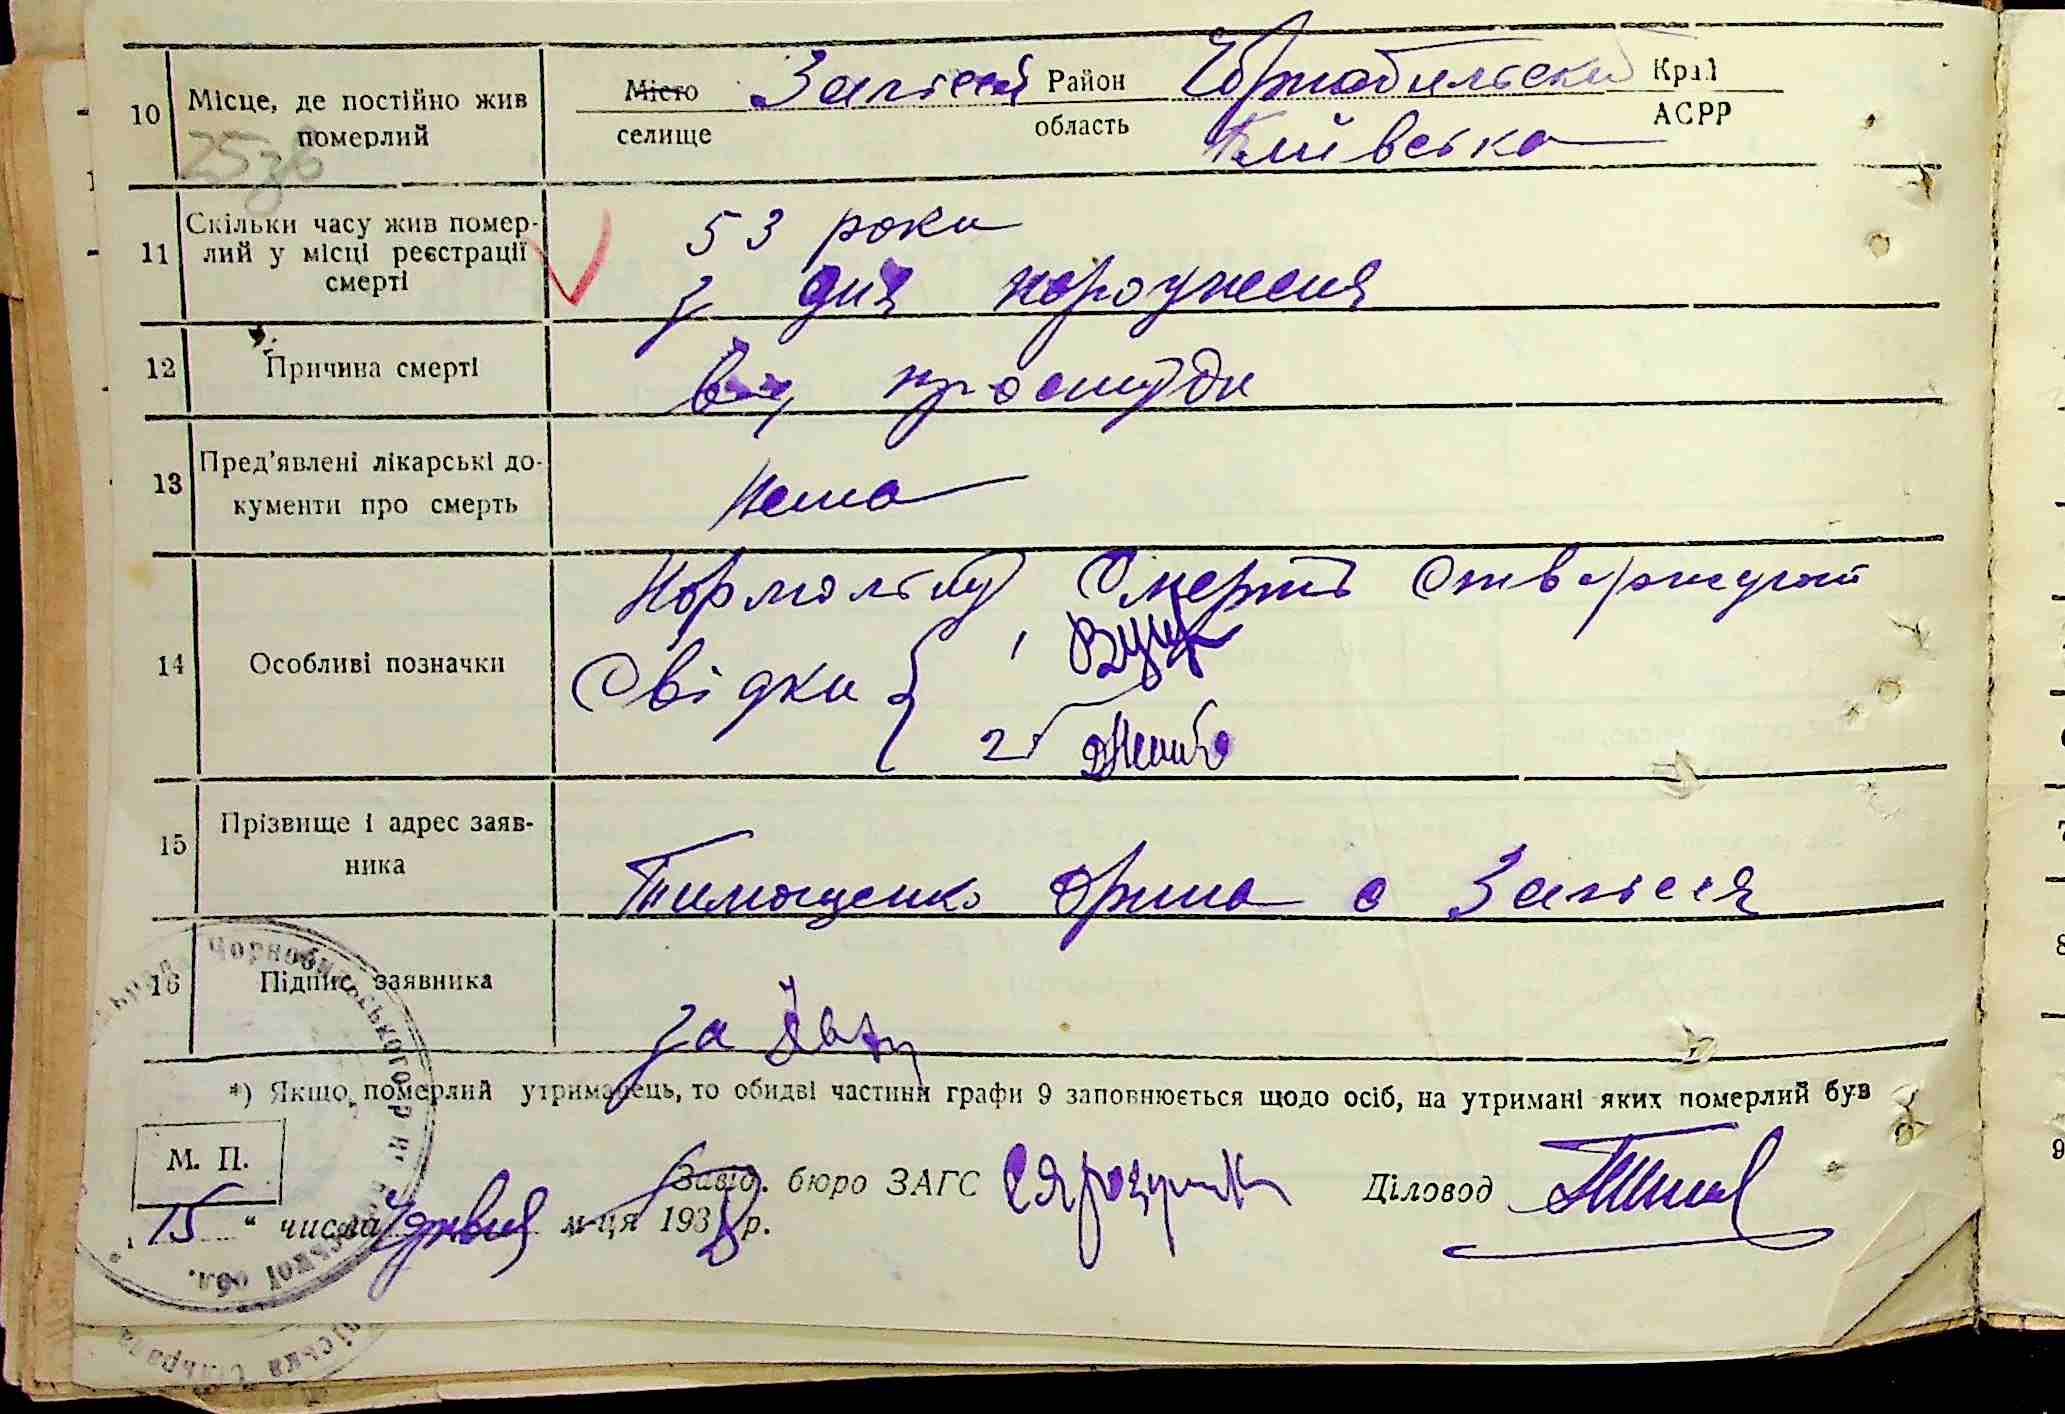 10 Місце, де постійно жив Місто Залісся Район Чорнобильськ Край
померлий селище область Київська АСРР
Скільки часу жив помер- 53 роки
11 лий у місці реєстрації
смерті з дня народження
12 Причина смерті від простуди
13 Пред'явлені лікарські до- Нема
кументи про смерть
Нормальну Смерть Стверджують
14 Особливі позначки Свідки { 1
2
15 Прізвище і адрес заяв-
ника Тимощенко Орина с Залісся
16 Підпис заявника
за
*) Якщо, померлий утриманець, то обидві частини графи 9 заповнюється щодо осіб, на утримані яких померлий був
М. П.
Завід. бюро ЗАГС Діловод
„ 15 “ числа м-ця 193 р.
Чорнобильського р-н
ської обл.